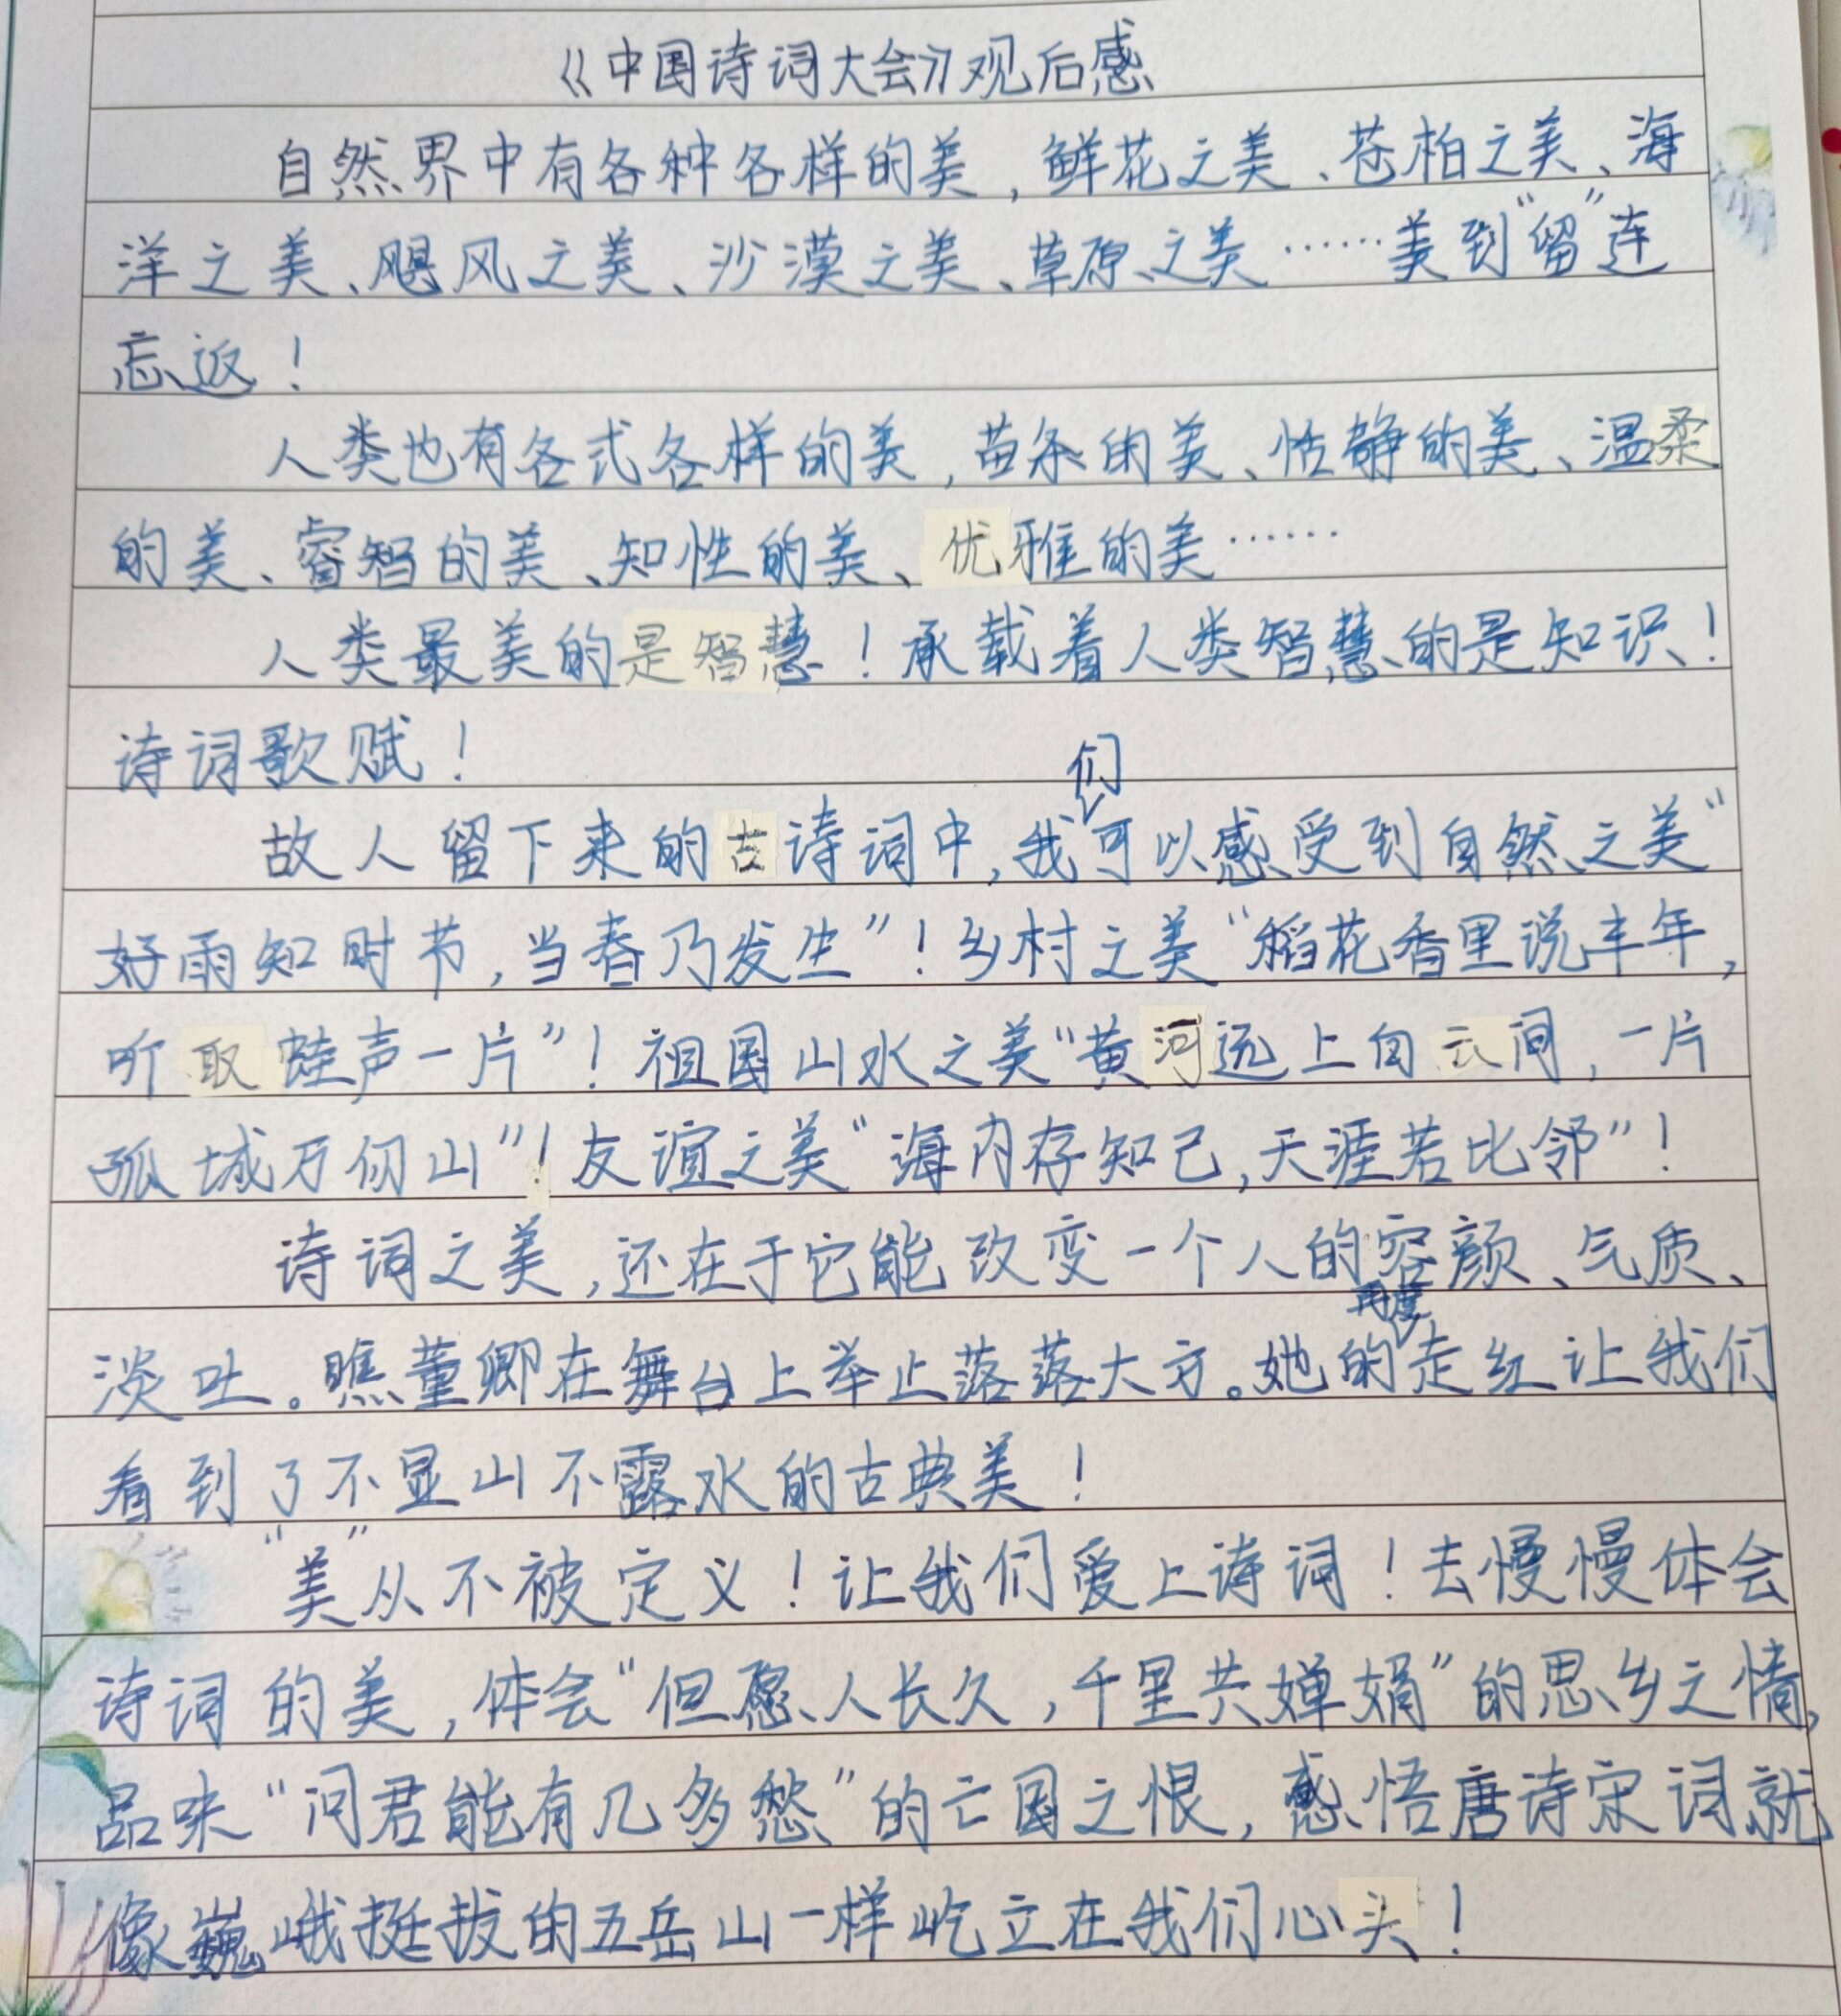 《中国诗词大会》观后感
自然界中有各种各样的美，鲜花之美、苍柏之美、海
洋之美、飓风之美、沙漠之美、草原之美……美到“留”连
忘返！
人类也有各式各样的美，苗条的美、恬静的美、温柔
的美、睿智的美、知性的美、优雅的美……
人类最美的是智慧！承载着人类智慧的是知识！
诗词歌赋！
故人留下来的古诗词中，我们可以感受到自然之美“
好雨知时节，当春乃发生”！乡村之美“稻花香里说丰年，
听取蛙声一片”！祖国山水之美“黄河远上白云间，一片
孤城万仞山”！友谊之美“海内存知己，天涯若比邻”！
诗词之美，还在于它能改变一个人的容颜、气质、
淡吐。瞧董卿在舞台上举止落落大方。她的再度走红让我们
看到了不显山不露水的古典美！
“美”从不被定义！让我们爱上诗词！去慢慢体会
诗词的美，体会“但愿人长久，千里共婵娟”的思乡之情，
品味“问君能有几多愁”的亡国之恨，感悟唐诗宋词就
像巍峨挺拔的五岳山一样屹立在我们心头！